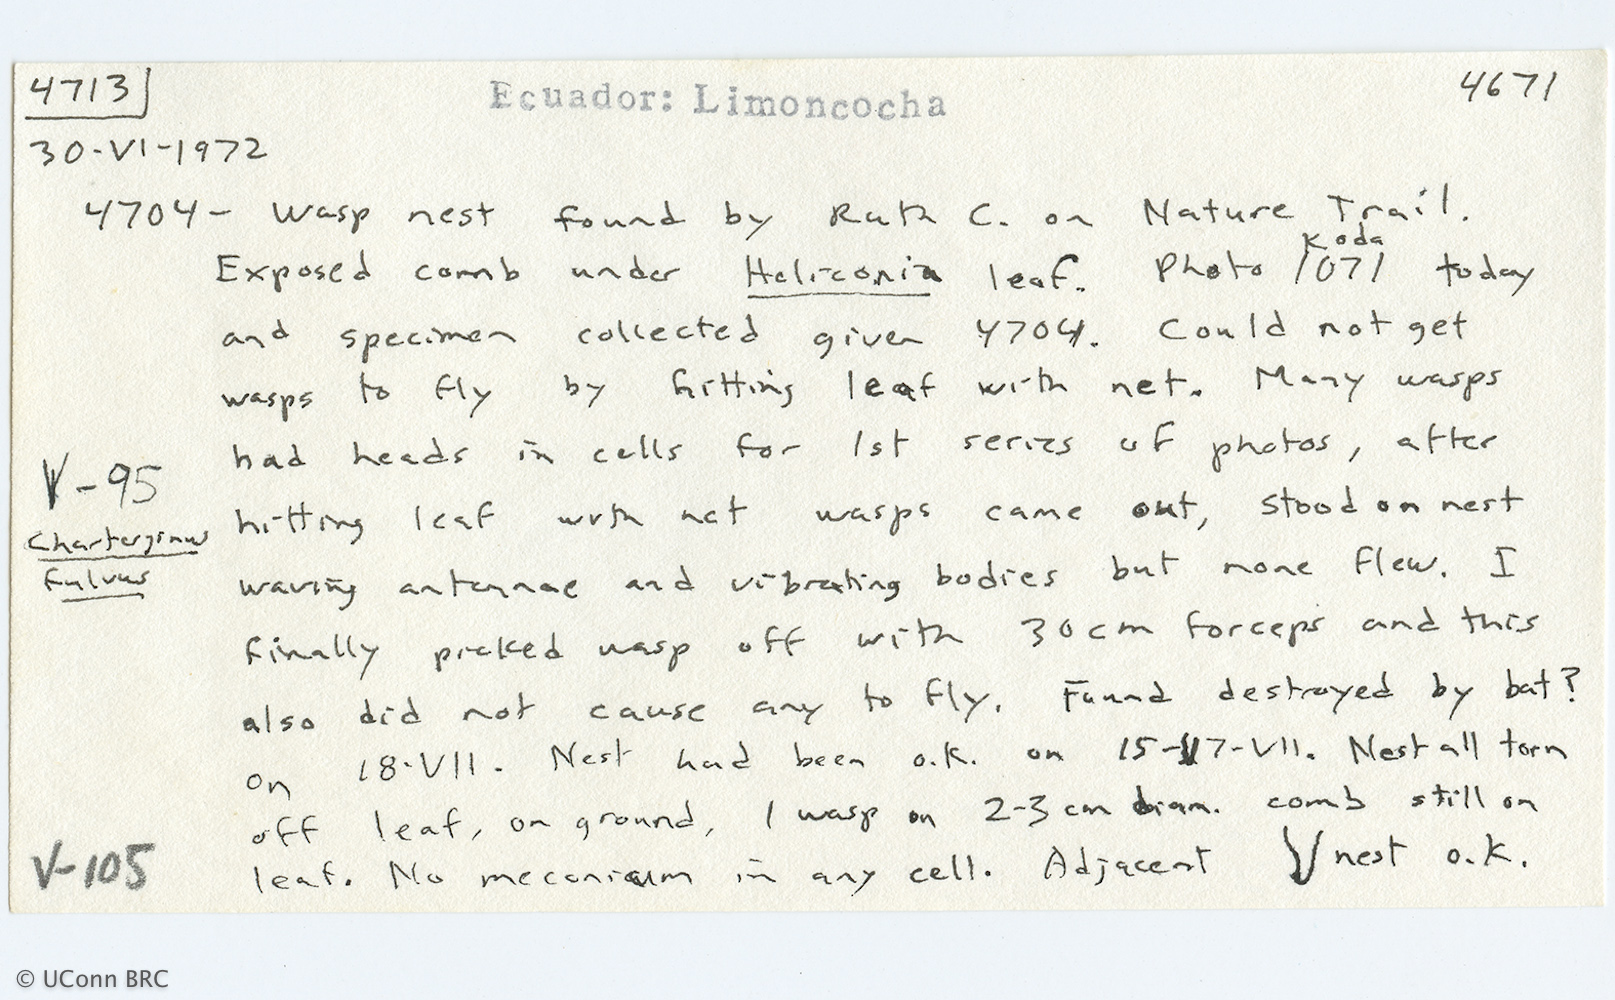 4713
Ecuador: Limoncocha
4671
30-VI-1972
4704- Wasp nest found by Ruth C. on Nature Trail.
Exposed comb under Heliconia leaf. Photo Koda 1071 today
and specimen collected given 4704. Could not get
wasps to fly by hitting leaf with net. Many wasps
had heads in cells for 1st series of photos, after
V-95
hitting leaf with net wasps came out, stood on nest
Charterginus
fulvus
waving antennae and vibrating bodies but none flew. I
finally picked wasp off with 30cm forceps and this
also did not cause any to fly. Found destroyed by bat?
on 18-VII. Nest had been o.k. on 15-17-VII. Nest all torn
off leaf, on ground, 1 wasp on 2-3 cm diam. comb still on
V-105
leaf. No meconium in any cell. Adjacent nest o.k.
© UConn BRC